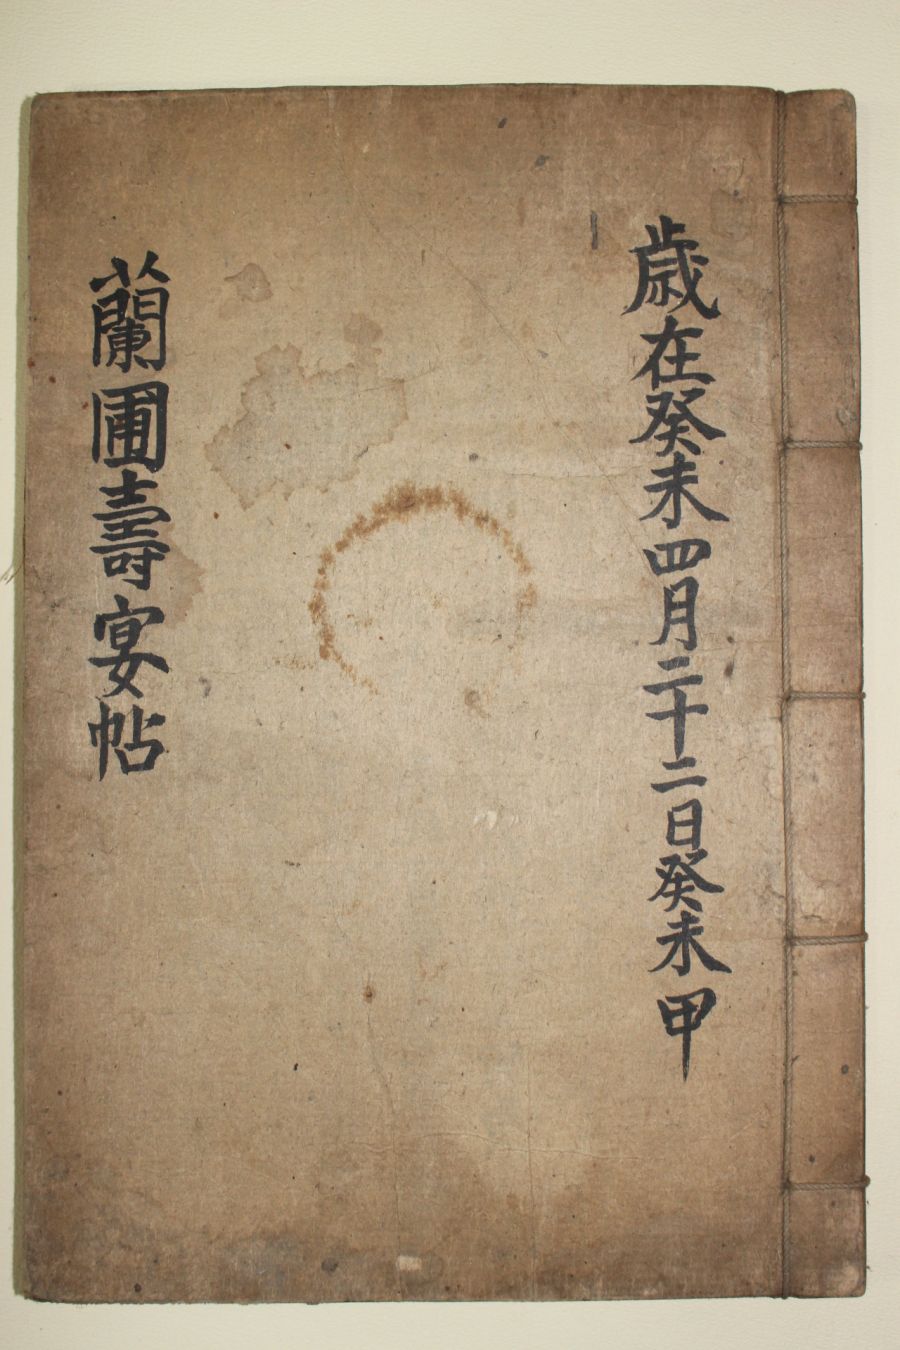 歲在癸未四月二十二日癸未甲
蘭圃壽宴帖